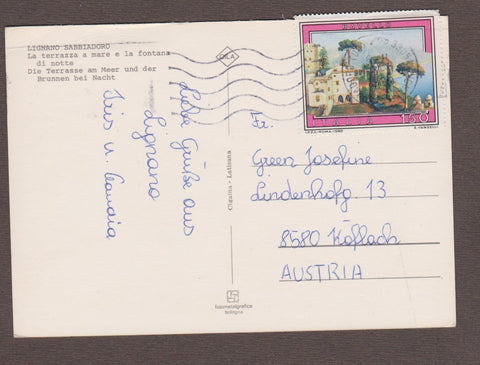 LIGNANO SABBIADORO
La terrazza a mare e la fontana
di notte
Die Terrasse am Meer und der
Brunnen bei Nacht
Liebe Grüße aus
Lignano
Iris u. Claudia
Cigaina - Latisana
fotometalgrafica
bologna
RAVELLO
ITALIA 150
Fr.
Green Josefine
Lindenhofg. 13
8580 Köflach
AUSTRIA